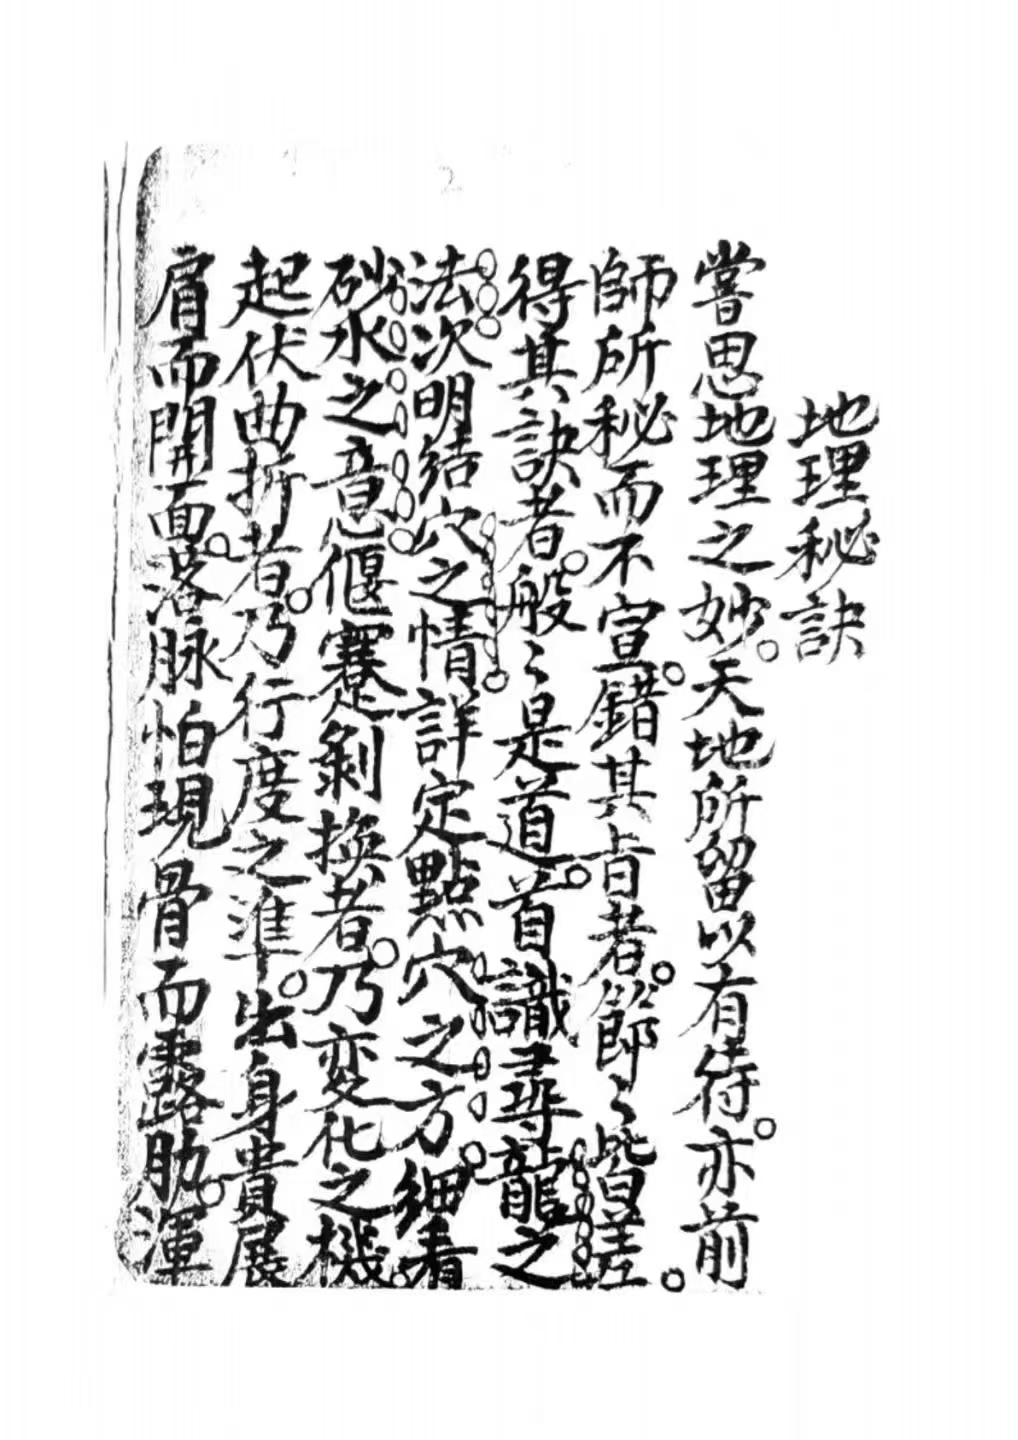 2
地理秘訣
嘗思地理之妙。天地所留以有待。亦前
師所秘而不宣。錯其旨者。節〻皆差。
得其訣者。般〻是道。首識尋龍之
法次明結穴之情。詳定點穴之方。細看
砂水之意。偃蹇剝換者。乃变化之機
起伏曲折者。乃行度之準。出身貴展
肩而開面。落脉怕現骨而露肋。渾